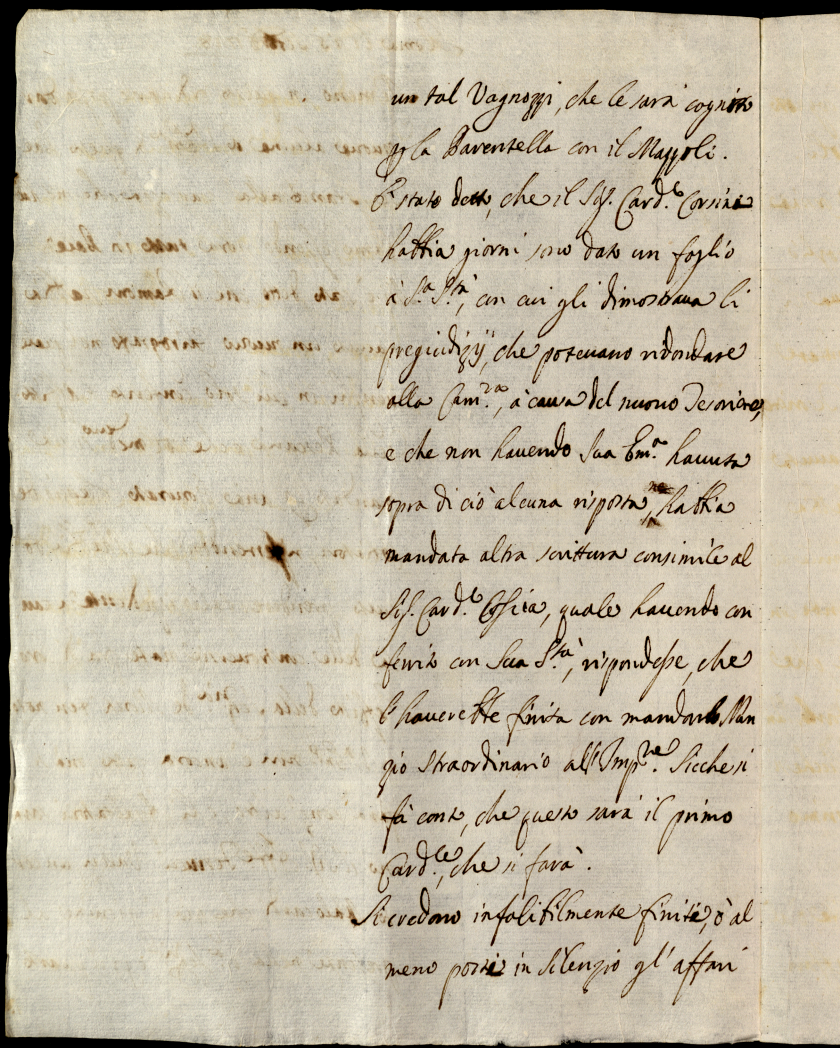 un tal Vagnozzi, che le sarà cognito
p la Parentella con il Mazzoli.
È stato detto, che il Sig.r Card.le Corsini
habbia giorni sono dato un foglio
à S.a S.tà, con cui gli dimostraua li
pregiudizij, che poteuano ridondare
alla Cam.ra, à causa del nuouo Tesoriere,
e che non hauendo Sua Em.a hauuta
sopra di ciò alcuna risposta, habbia
mandata altra scrittura consimile al
Sig.r Card.le Coscia, quale hauendo con
ferito con Sua S.tà, rispondesse, che
l'hauerebbe finita con mandarlo Nun
zio straordinario all' Imp.re. Sicche si
fà conto, che questo sarà il primo
Card.le, che si farà.
Si credono infalibilmente finite, ò al
meno posti in silenzio gl' affari